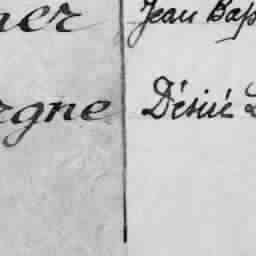 ner Jean Bap
rgne Désiré